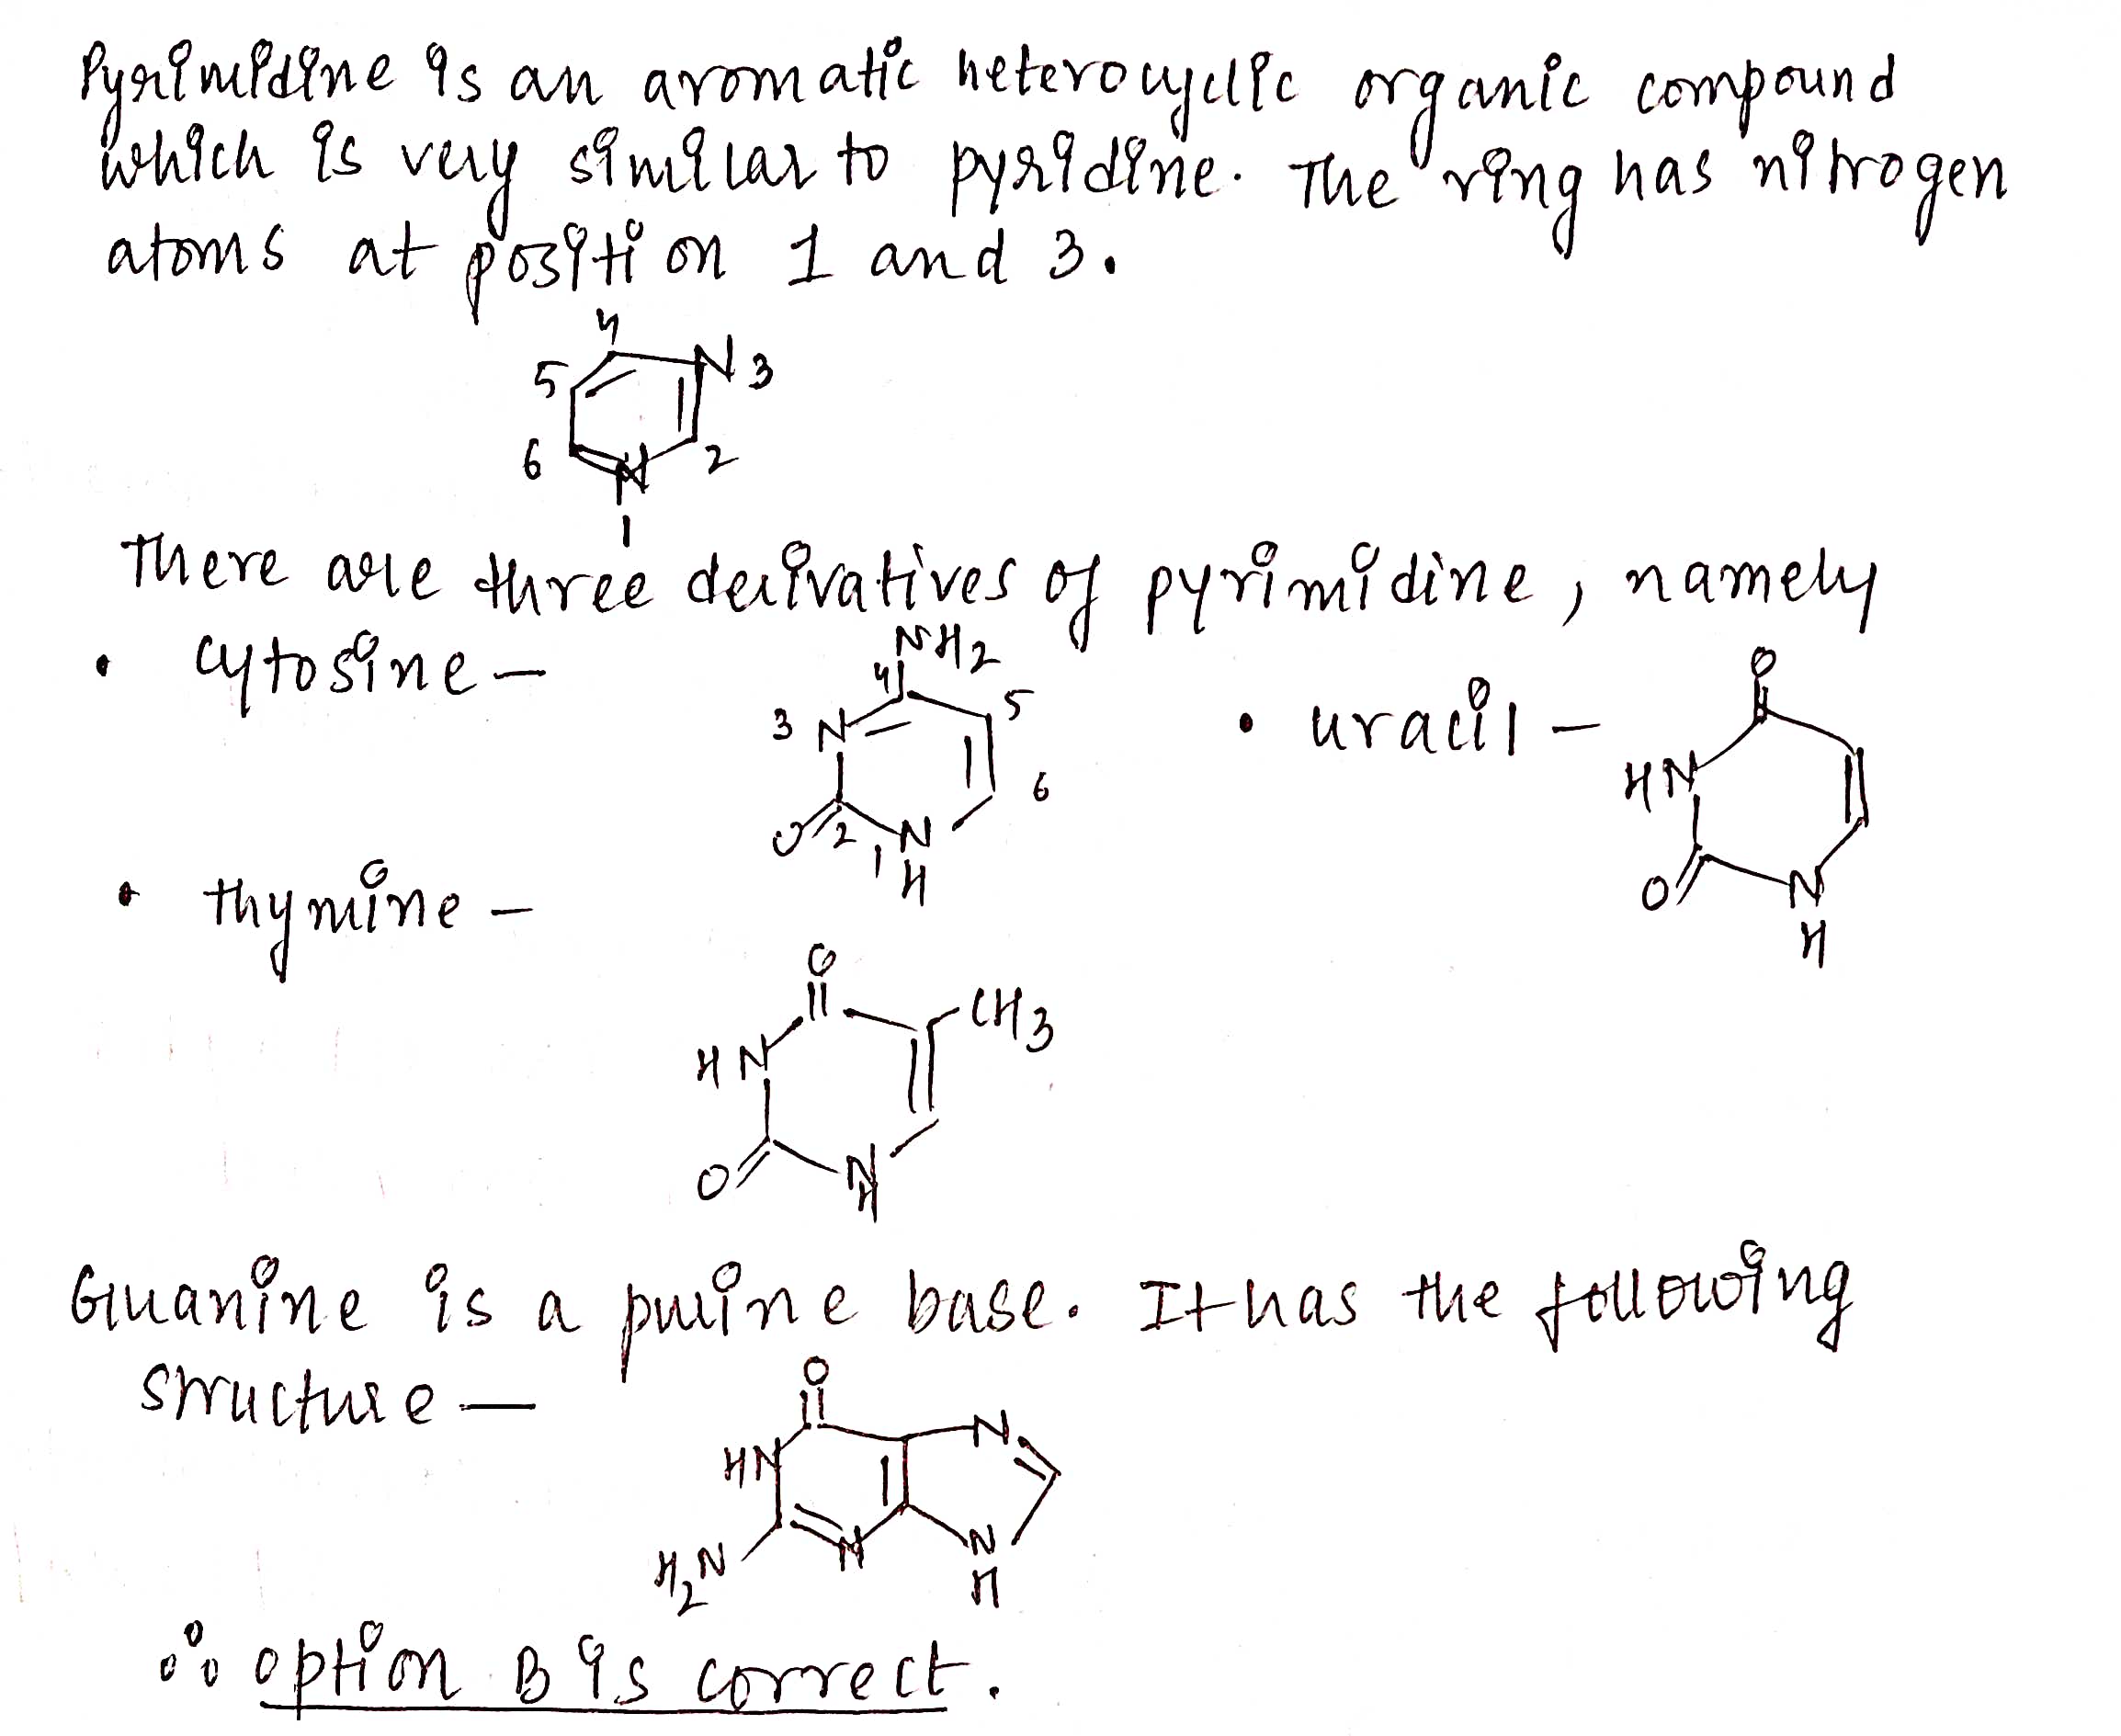 Pyrimidine is an aromatic heterocyclic organic compound
which is very similar to pyridine. The ring has nitrogen
atoms at position 1 and 3.
4
5 N 3
6 N 2
1
There are three derivatives of pyrimidine, namely
• cytosine –
NH2
4 5
3 N
6
O 2 N
1 H
• uracil –
O
HN
O N
H
• thymine –
O
CH3
HN
O N
H
Guanine is a purine base. It has the following
structure —
O
HN N
H2N N N
H
∴ option B is correct.